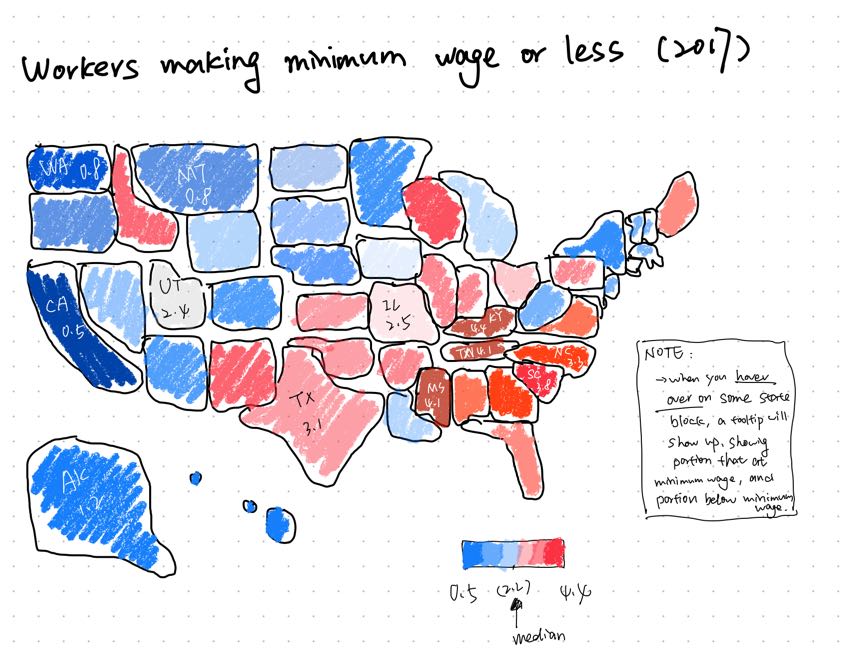 Workers making minimum wage or less (2017)
WA 0.8
MT
0.8
CA
0.5
UT
2.4
IL
2.5
KY
4.4
TN 4.1
NC
3.3
SC
3.8
MS
4.1
TX
3.1
AK
1.2
NOTE:
→ when you hover
over on some state
block, a tooltip will
show up, showing
portion that at
minimum wage, and
portion below minimum
wage.
0.5 (2.2) 4.4
median